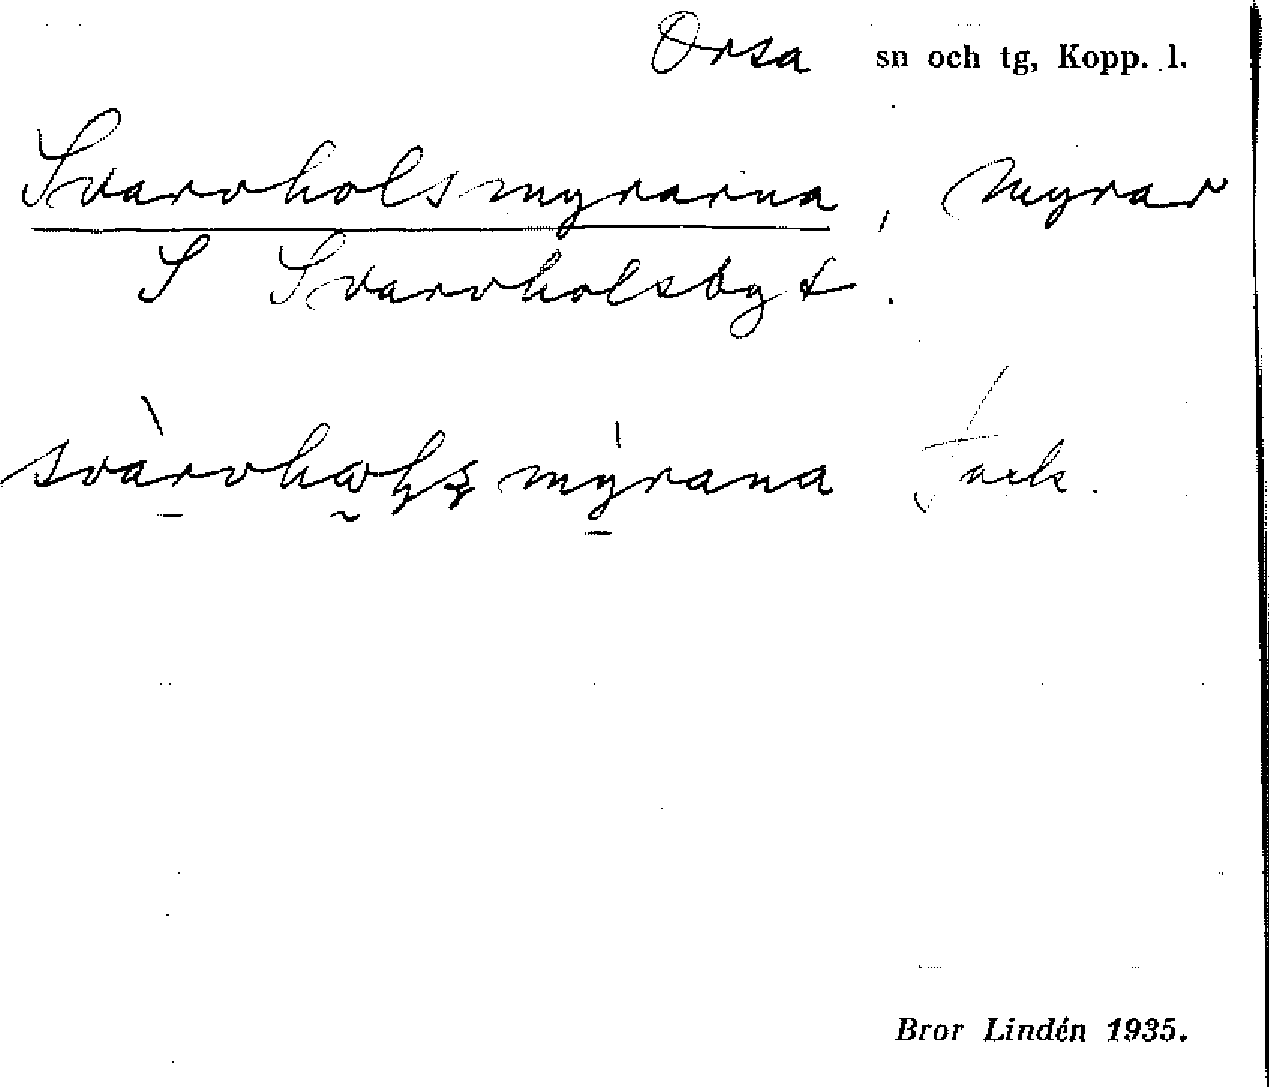 Orsa sn och tg, Kopp. l.
Svarvholsmyrarna, Myrar
S Svarvholsbyt.
svàrvhωls mýrana
Bror Lindén 1935.